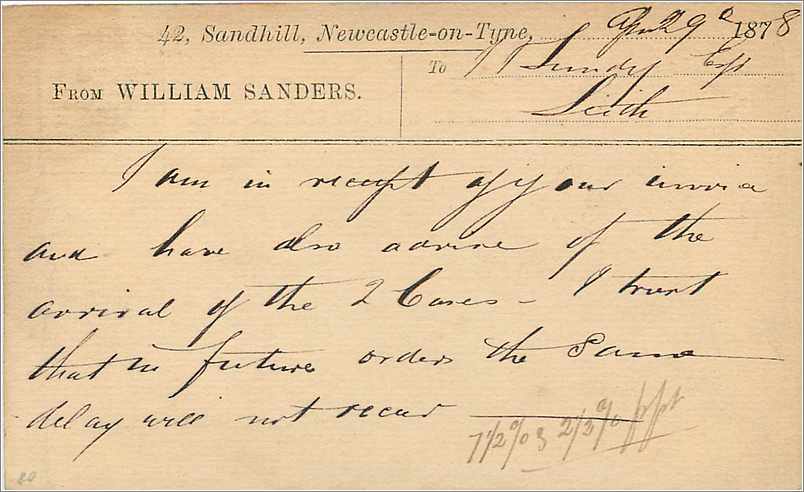 42, Sandhill, Newcastle-on-Tyne, Apr 29 1878
FROM WILLIAM SANDERS.
To Lundy Esq
Leith
I am in receipt of your invoice
and have also advise of the
arrival of the 2 Cases - I trust
that in future orders the Same
delay will not recur
7 1/2 % 2 1/2 % ppt